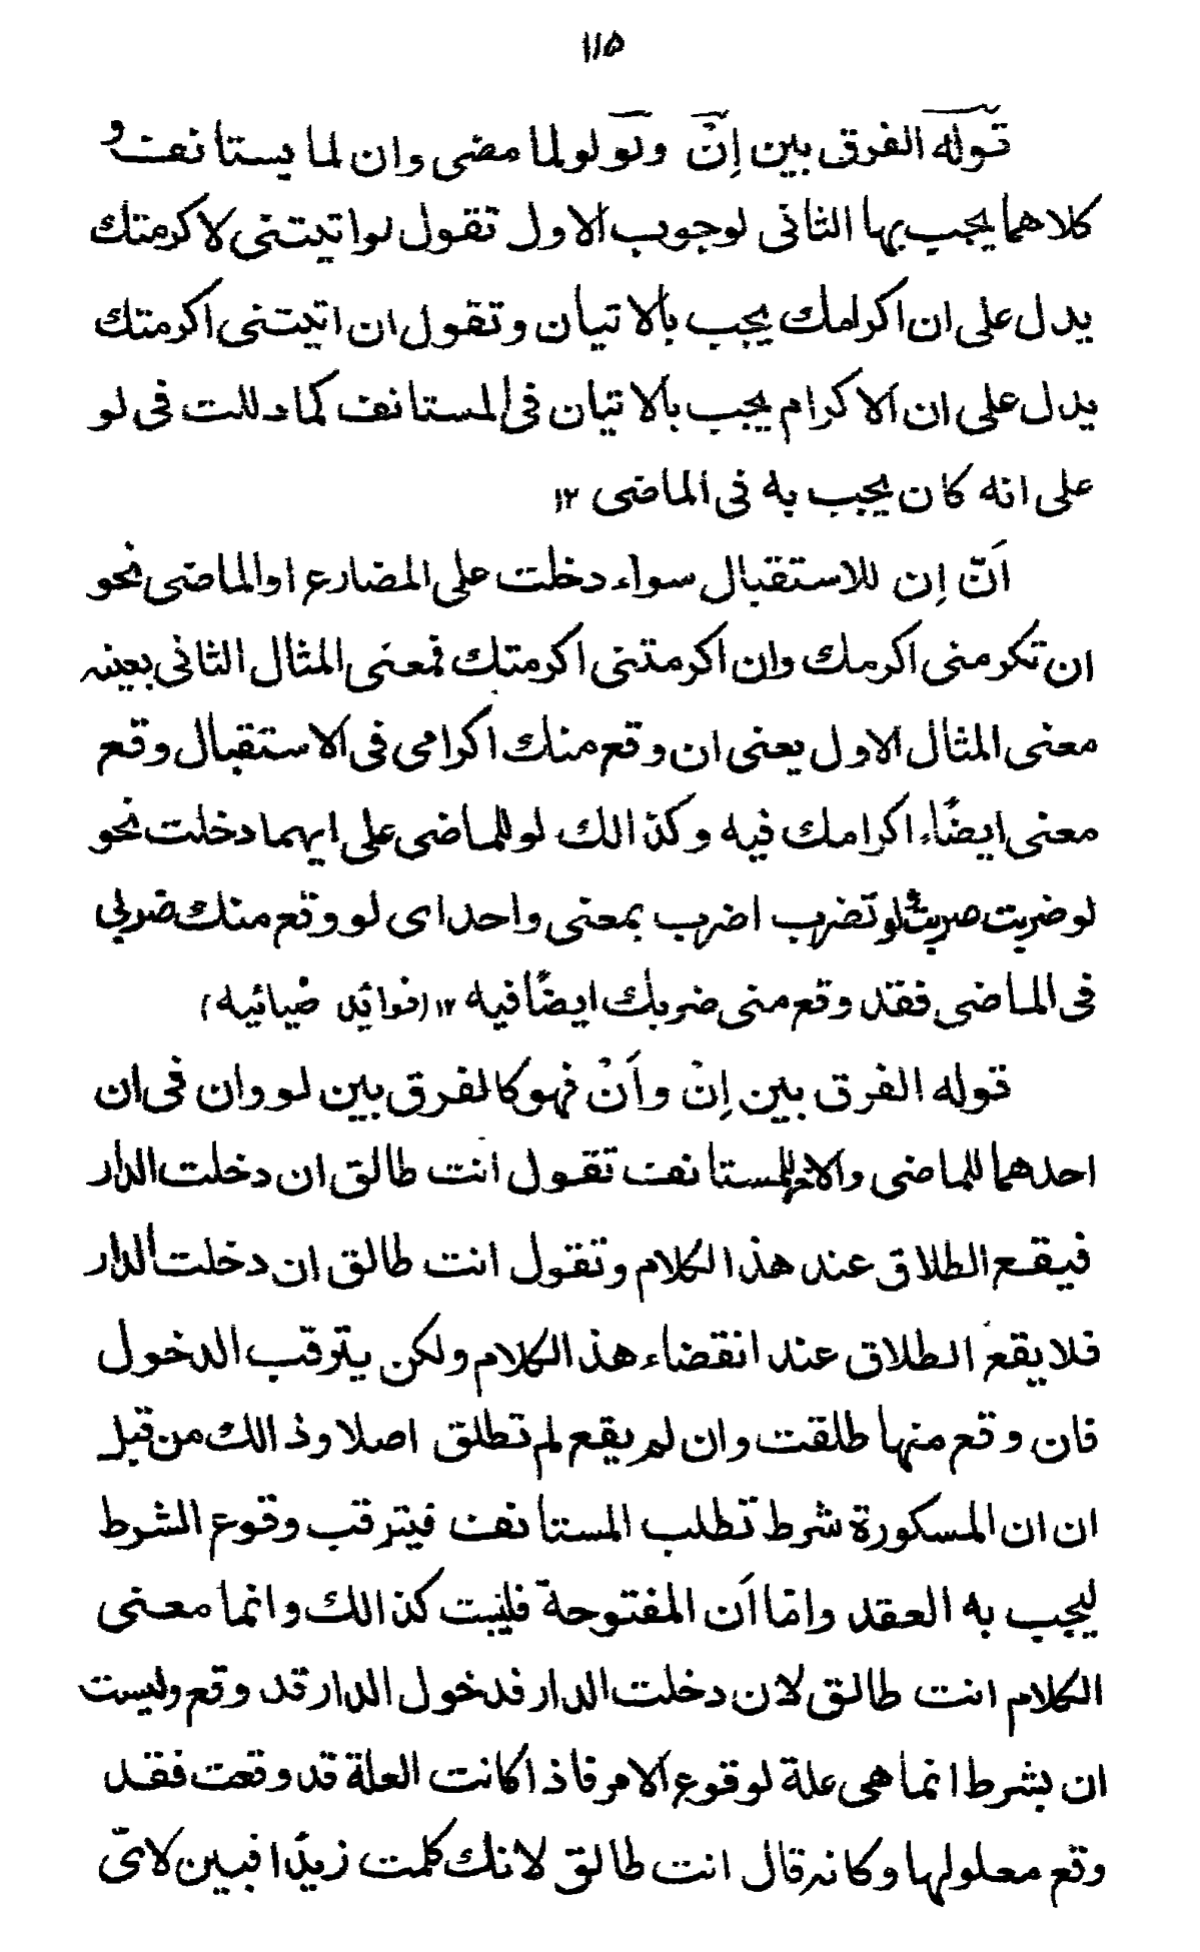 ١١٥
قوله الفرق بين إنْ ولَو لو لما مضى وان لما يستانف و
كلاهما يجب بها الثانى لوجوب الاول تقول لو اتيتنى لاكرمتك
يدل على ان اكرامك يجب بالاتيان وتقول ان اتيتنى اكرمتك
يدل على ان الاكرام يجب بالاتيان فى المستانف كما دللت فى لو
على انه كان يجب به فى الماضى ١٢
اَنّ اِن للاستقبال سواء دخلت على المضارع او الماضى نحو
ان تكرمنى اكرمك وان اكرمتنى اكرمتك فمعنى المثال الثانى بعينه
معنى المثال الاول يعنى ان وقع منك اكرامى فى الاستقبال وقع
معنى ايضًاء اكرامك فيه وكذالك لو للماضى على ايهما دخلت نحو
لو ضربت ضربت ولو تضرب اضرب بمعنى واحد اى لو وقع منك ضربى
فى الماضى فقد وقع منى ضربك ايضًا فيه ١٢ (فوائد ضيائيه)
قوله الفرق بين اِنْ واَنْ فهو كالفرق بين لو وان فى ان
احدهما للماضى والاخر للمستانف تقول انت طالق ان دخلت الدار
فيقع الطلاق عند هذا الكلام وتقول انت طالق ان دخلت الدار
فلا يقع الطلاق عند انقضاء هذ الكلام ولكن يترقب الدخول
فان وقع منها طلقت وان لم يقع لم تطلق اصلا وذالك من قبل
ان ان المسكورة شرط تطلب المستانف فيترقب وقوع الشرط
ليجب به العقد وامّا اَن المفتوحة فليست كذالك وانما معنى
الكلام انت طالق لان دخلت الدار فدخول الدار قد وقع وليست
ان بشرط انما هى علة لوقوع الامر فاذا كانت العلة قد وقعت فقد
وقع معلولها وكانه قال انت طالق لانك كلمت زيدًا فبين لاىّ